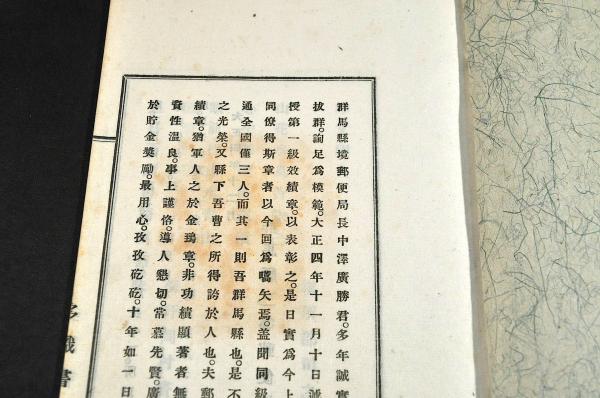 群馬縣境郵便局長中澤廣勝君。多年誠實
拔群。詢足爲模範。大正四年十一月十日誠
授第一級效績章。以表彰之。是日實爲今上
同僚得斯章者以今回爲嚆矢焉。盖聞同級
通全國僅三人。而其一則吾群馬縣也。是不
之光榮。又縣下吾曹之所得誇於人也。夫郵
績章。猶軍人之於金鵄章。非功績顯著者無
資性溫良。事上謹恪。導人懇切。常慕先賢。廣
於貯金奬勵。最用心。孜孜矻矻。十年如一日